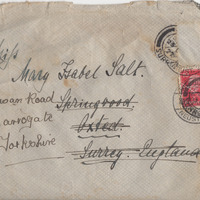 Miss
Mary Isabel Salt.
Springwood.
Oxted.
Surrey. England
Road
Harrogate
Yorkshire